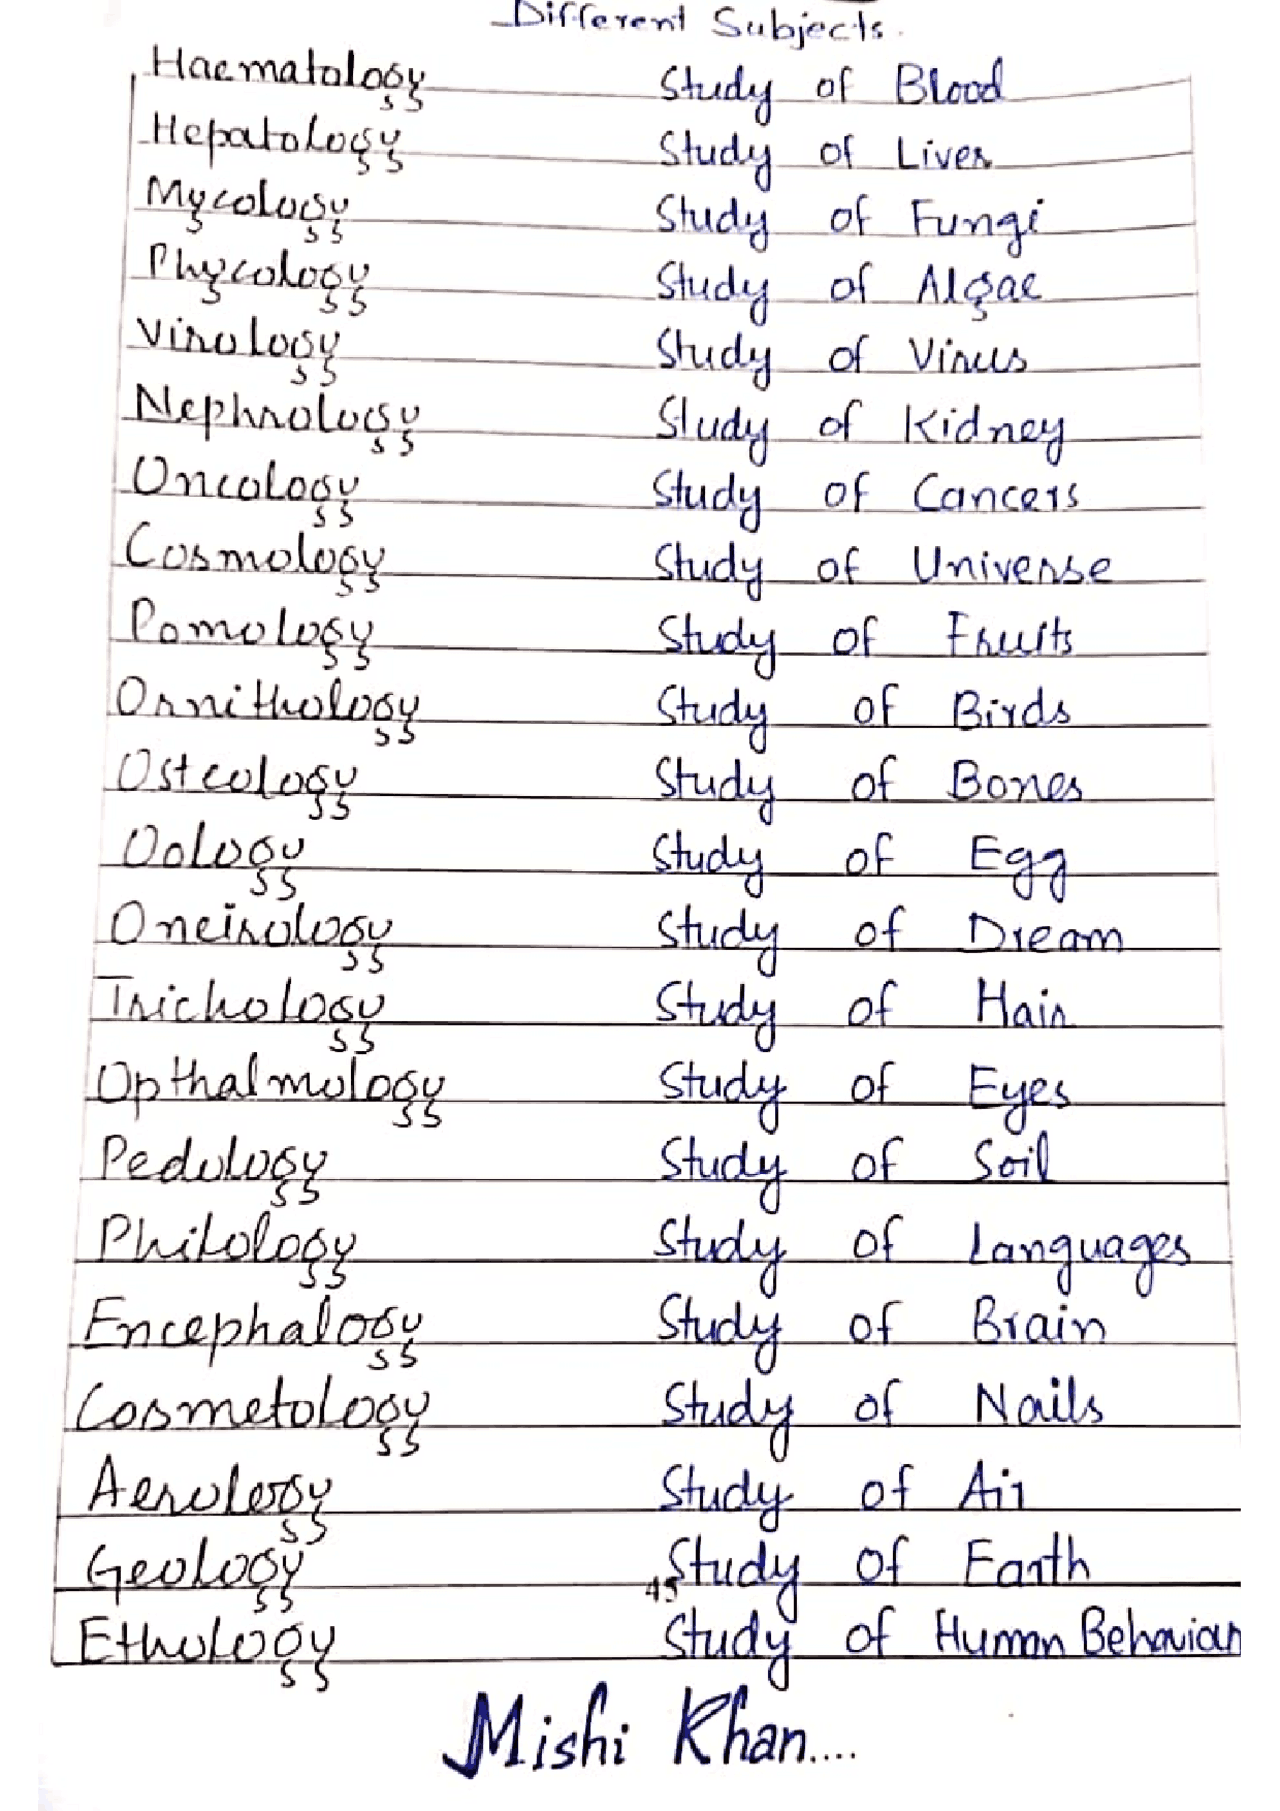 Different Subjects.
Haematology Study of Blood
Hepatology Study of Liver
Mycology Study of Fungi
Phycology Study of Algae
Virology Study of Virus
Nephrology Study of Kidney
Oncology Study of Cancers
Cosmology Study of Universe
Pomology Study of Fruits
Ornithology Study of Birds
Osteology Study of Bones
Oology Study of Egg
Oneirology Study of Dream
Trichology Study of Hair
Opthalmology Study of Eyes
Pedology Study of Soil
Philology Study of Languages
Encephalogy Study of Brain
Cosmetology Study of Nails
Aerology Study of Air
Geology Study of Earth
45
Ethology Study of Human Behaviar
Mishi Khan....